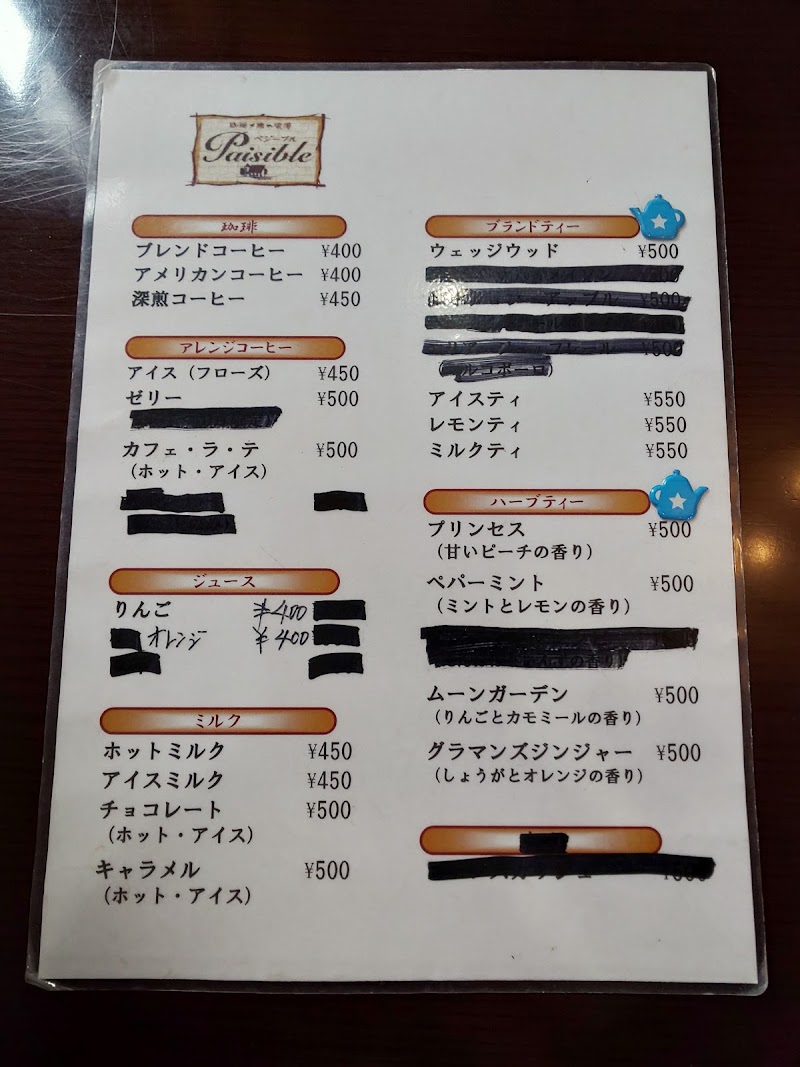 ペジーブル
Paisible
珈琲
ブレンドコーヒー ¥400
アメリカンコーヒー ¥400
深煎コーヒー ¥450
アレンジコーヒー
アイス（フローズ） ¥450
ゼリー ¥500
カフェ・ラ・テ ¥500
（ホット・アイス）
ジュース
りんご ¥400
オレンジ ¥400
ミルク
ホットミルク ¥450
アイスミルク ¥450
チョコレート ¥500
（ホット・アイス）
キャラメル ¥500
（ホット・アイス）
ブランドティー
ウェッジウッド ¥500
アップル ¥500
¥500
ルコポーロ
アイスティ ¥550
レモンティ ¥550
ミルクティ ¥550
ハーブティー
プリンセス ¥500
（甘いピーチの香り）
ペパーミント ¥500
（ミントとレモンの香り）
の香り）
ムーンガーデン ¥500
（りんごとカモミールの香り）
グラマンズジンジャー ¥500
（しょうがとオレンジの香り）